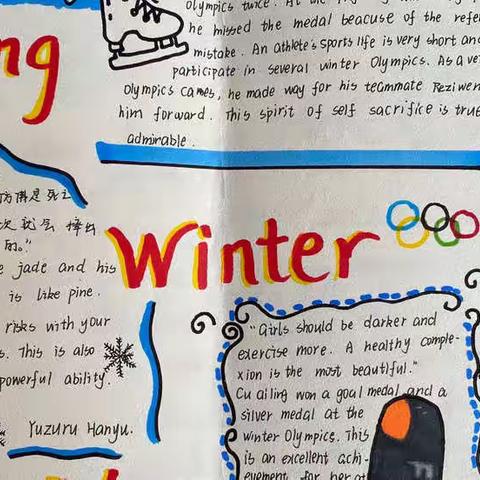 ng
olympics twice. At the
he missed the medal beacuse of the refe
mistake. An athlete's sports life is very short and
participate in several winter Olympics. As a ve
Olympics Games, he made way for his teammate Reziwen
him forward. This spirit of self sacrifice is true
admirable.
的."
e jade and his
is like pine.
risks with your
s. This is also
powerful ability.
Yuzuru Hanyu.
Winter
"Girls should be darker and
exercise more. A healthy comple-
xion is the most beautiful."
Cu ailing won a goal medal and a
silver medal at the
winter Olympics. This
is an excellent achi-
evement for her at